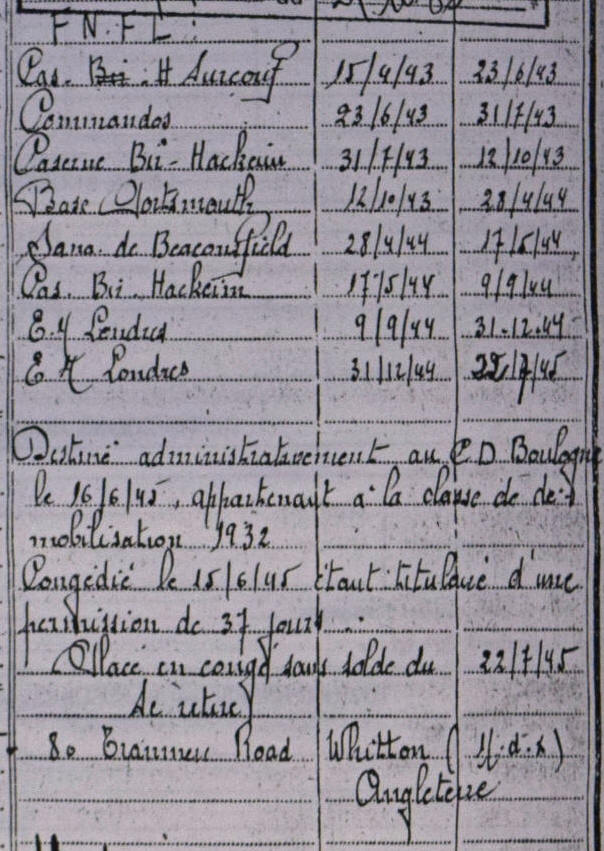 F.N.F.L :
Cas. Bir. H Surcouf 15/4/43 23/6/43
Commandos 23/6/43 31/7/43
Caserne Bir-Hackeim 31/7/43 12/10/43
Base Portsmouth 12/10/43 28/4/44
Sana. de Beaconsfield 28/4/44 17/5/44
Cas. Bir. Hackeim 17/5/44 9/9/44
E.M Londres 9/9/44 31.12.44
E M Londres 31/12/44 22/7/45
Destiné administrativement au C.D Boulogne
le 16/6/45, appartenant à la classe de dé-
mobilisation 1932
Congédié le 15/6/45 étant titulaire d'une
permission de 37 jours.
Placé en congé sans solde du 22/7/45
Se retire
80 Road Whitton (
Angleterre